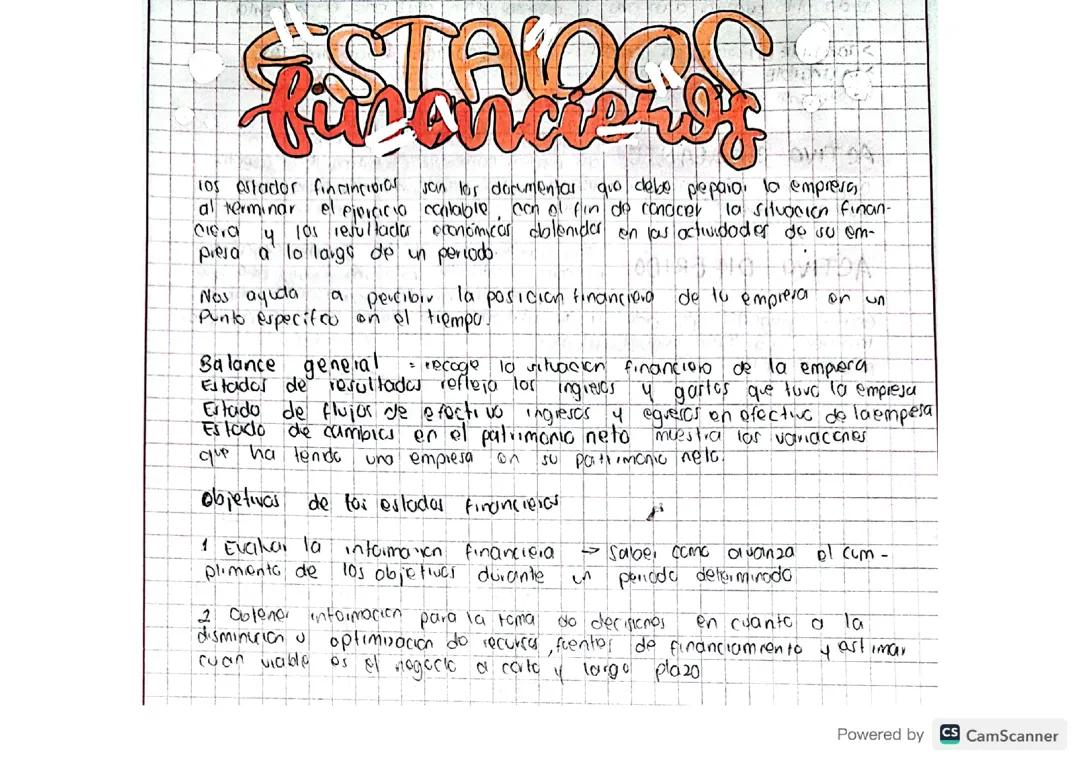 ESTADOS
financieros
los estados financieros son los documentos que debe preparar la empresa,
al terminar el ejercicio contable, con el fin de conocer la situacion finan-
ciera y los resultados económicos obtenidos en las actividades de su em-
presa a lo largo de un periodo.
Nos ayuda a percibir la posición financiera de tu empresa en un
punto especifico en el tiempo.
Balance general = recoge la situacion financiera de la empresa
Estados de resultados refleja los ingresos y gastos que tuvo la empresa
Estado de flujos de efectivo ingresos y egresos en efectivo de la empesa
Estado de cambios en el patrimonio neto muestra las variaciones
que ha tenido una empresa en su patrimonio neto.
Objetivos de los estados financieros
1 Evaluar la información financiera → Saber como avanza el cum-
plimento de los objetivos durante un periodo determinado
2 Obtener información para la toma de decisiones en cuanto a la
disminución u optimización de recursos, fuentes de financiamiento y estimar
cuan viable es el negocio a corto y largo plazo
Powered by CS CamScanner